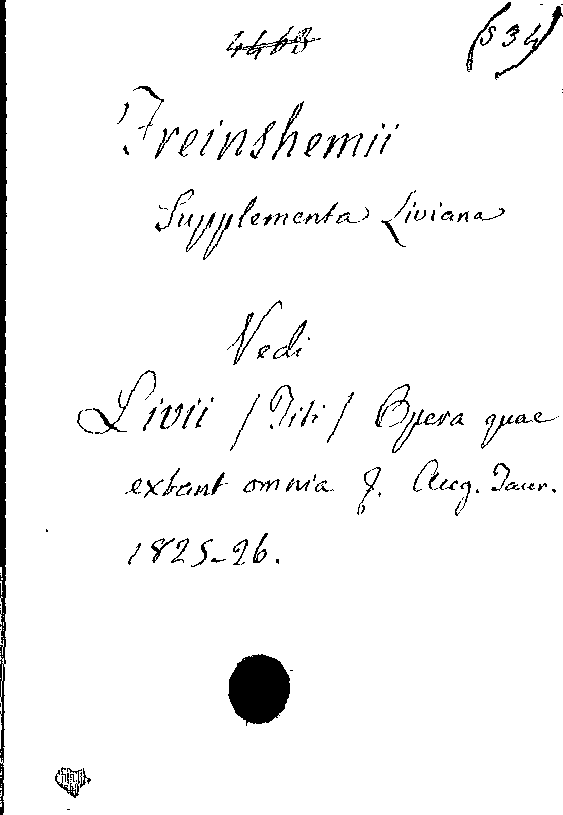 4463
(S 34)
Freinshemii
Supplementa Liviana
Vedi
Livii /Titi/ Opera quae
extant omnia &. Aug. Taur.
1825-26.